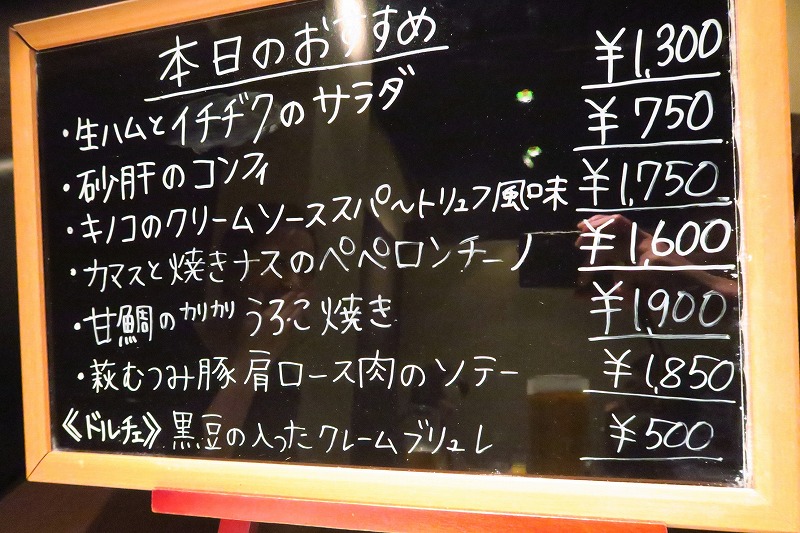 本日のおすすめ
・生ハムとイチヂクのサラダ ¥1,300
・砂肝のコンフィ ¥750
・キノコのクリームソーススパ～トリュフ風味 ¥1,750
・カマスと焼きナスのペペロンチーノ ¥1,600
・甘鯛のカリカリうろこ焼き ¥1,900
・萩むつみ豚肩ロース肉のソテー ¥1,850
《ドルチェ》黒豆の入ったクレームブリュレ ¥500